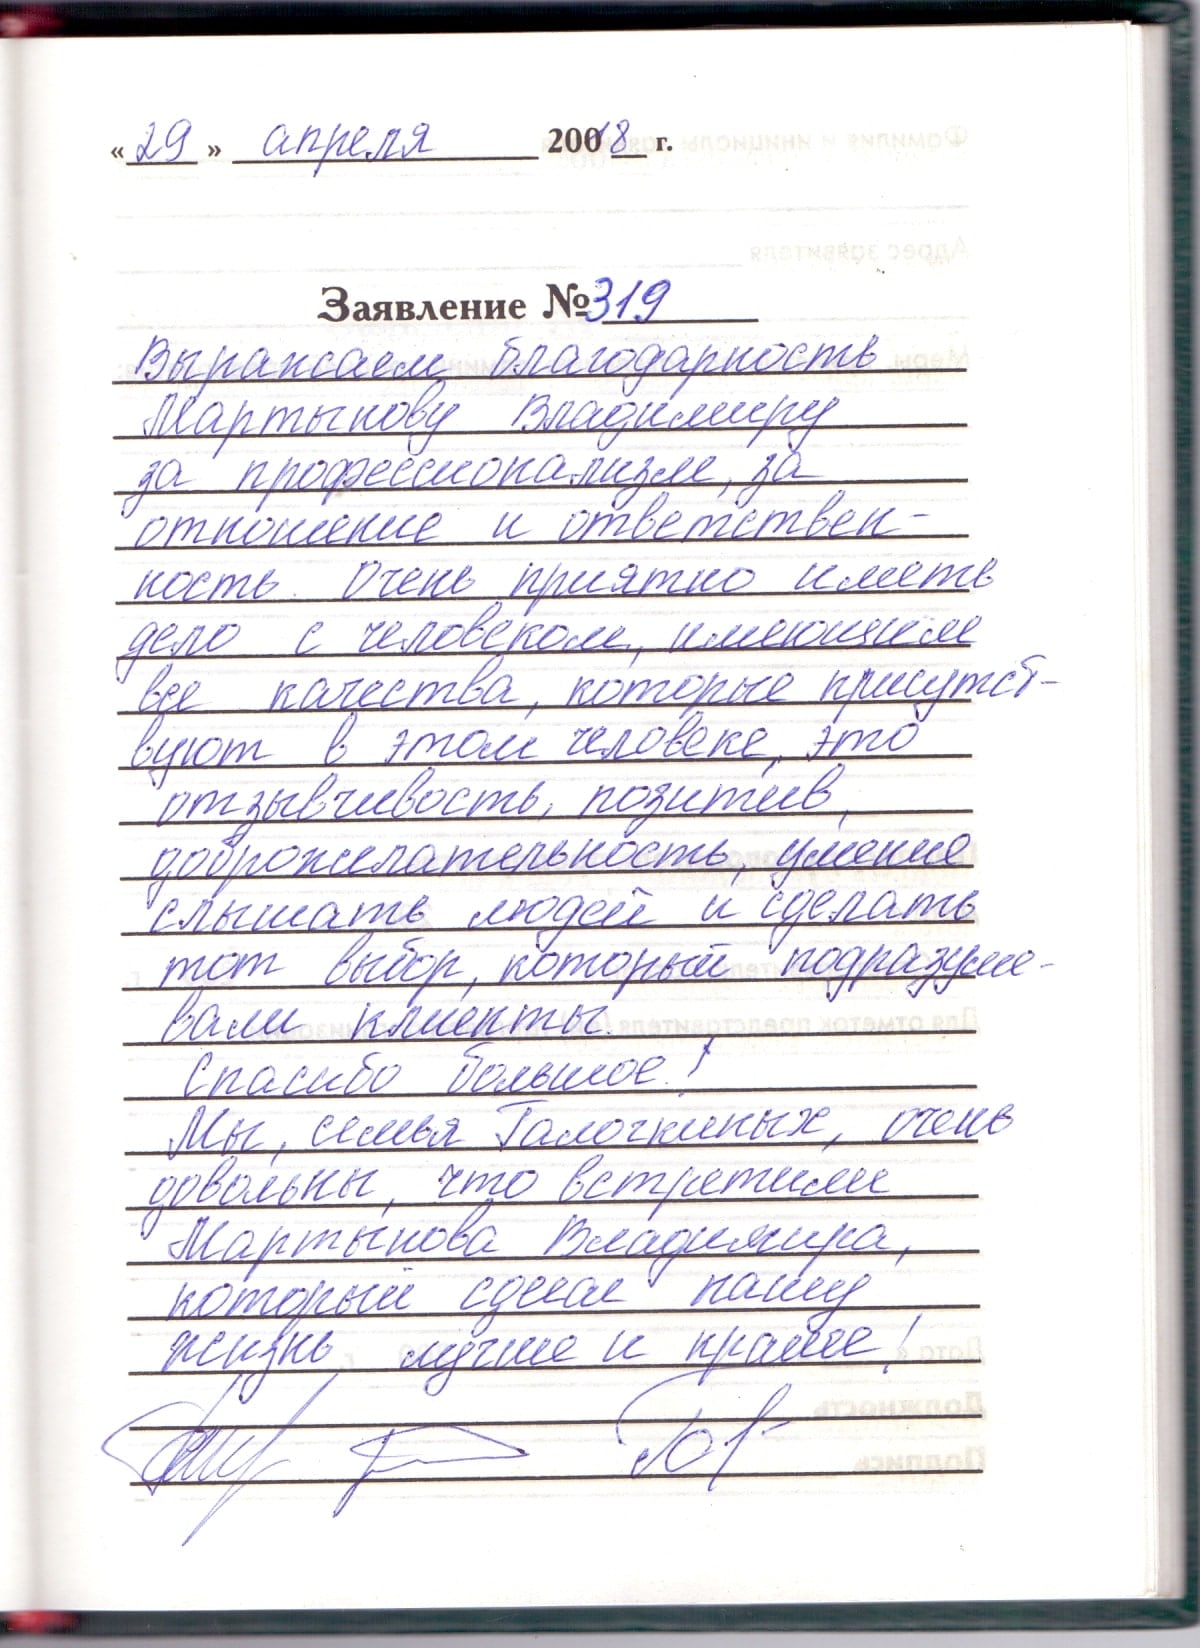 «29» апреля 20018 г.
Заявление №319
Выражаем благодарность
Мартынову Владимиру
за профессионализм, за
отношение и ответствен-
ность. Очень приятно иметь
дело с человеком, имеющим
все качества, которые присутст-
вуют в этом человеке, это
отзывчивость, позитив,
доброжелательность, умение
слышать людей и сделать
тот выбор, который подразуме-
вали клиенты.
Спасибо большое!
Мы, семья Галочкиных, очень
довольны, что встретили
Мартынова Владимира,
который сделал нашу
жизнь лучше и краше!